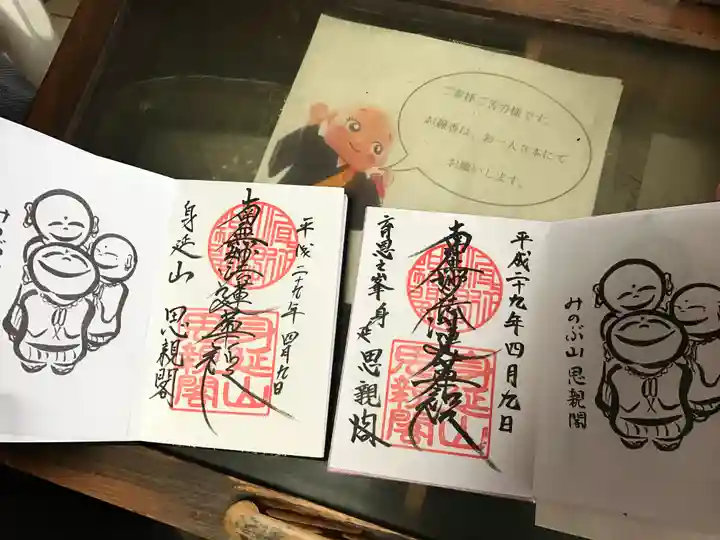 ご参拝ご苦労様です。
お線香は、お一人寺本にて
お願いします。
みのぶ
平成二十九年四月九日
南無妙法蓮華経
身延山 思親閣
身延山
思親閣
平成二十九年四月九日
南無妙法蓮華経
身延 思親閣
身延山
思親閣
みのぶ山思親閣